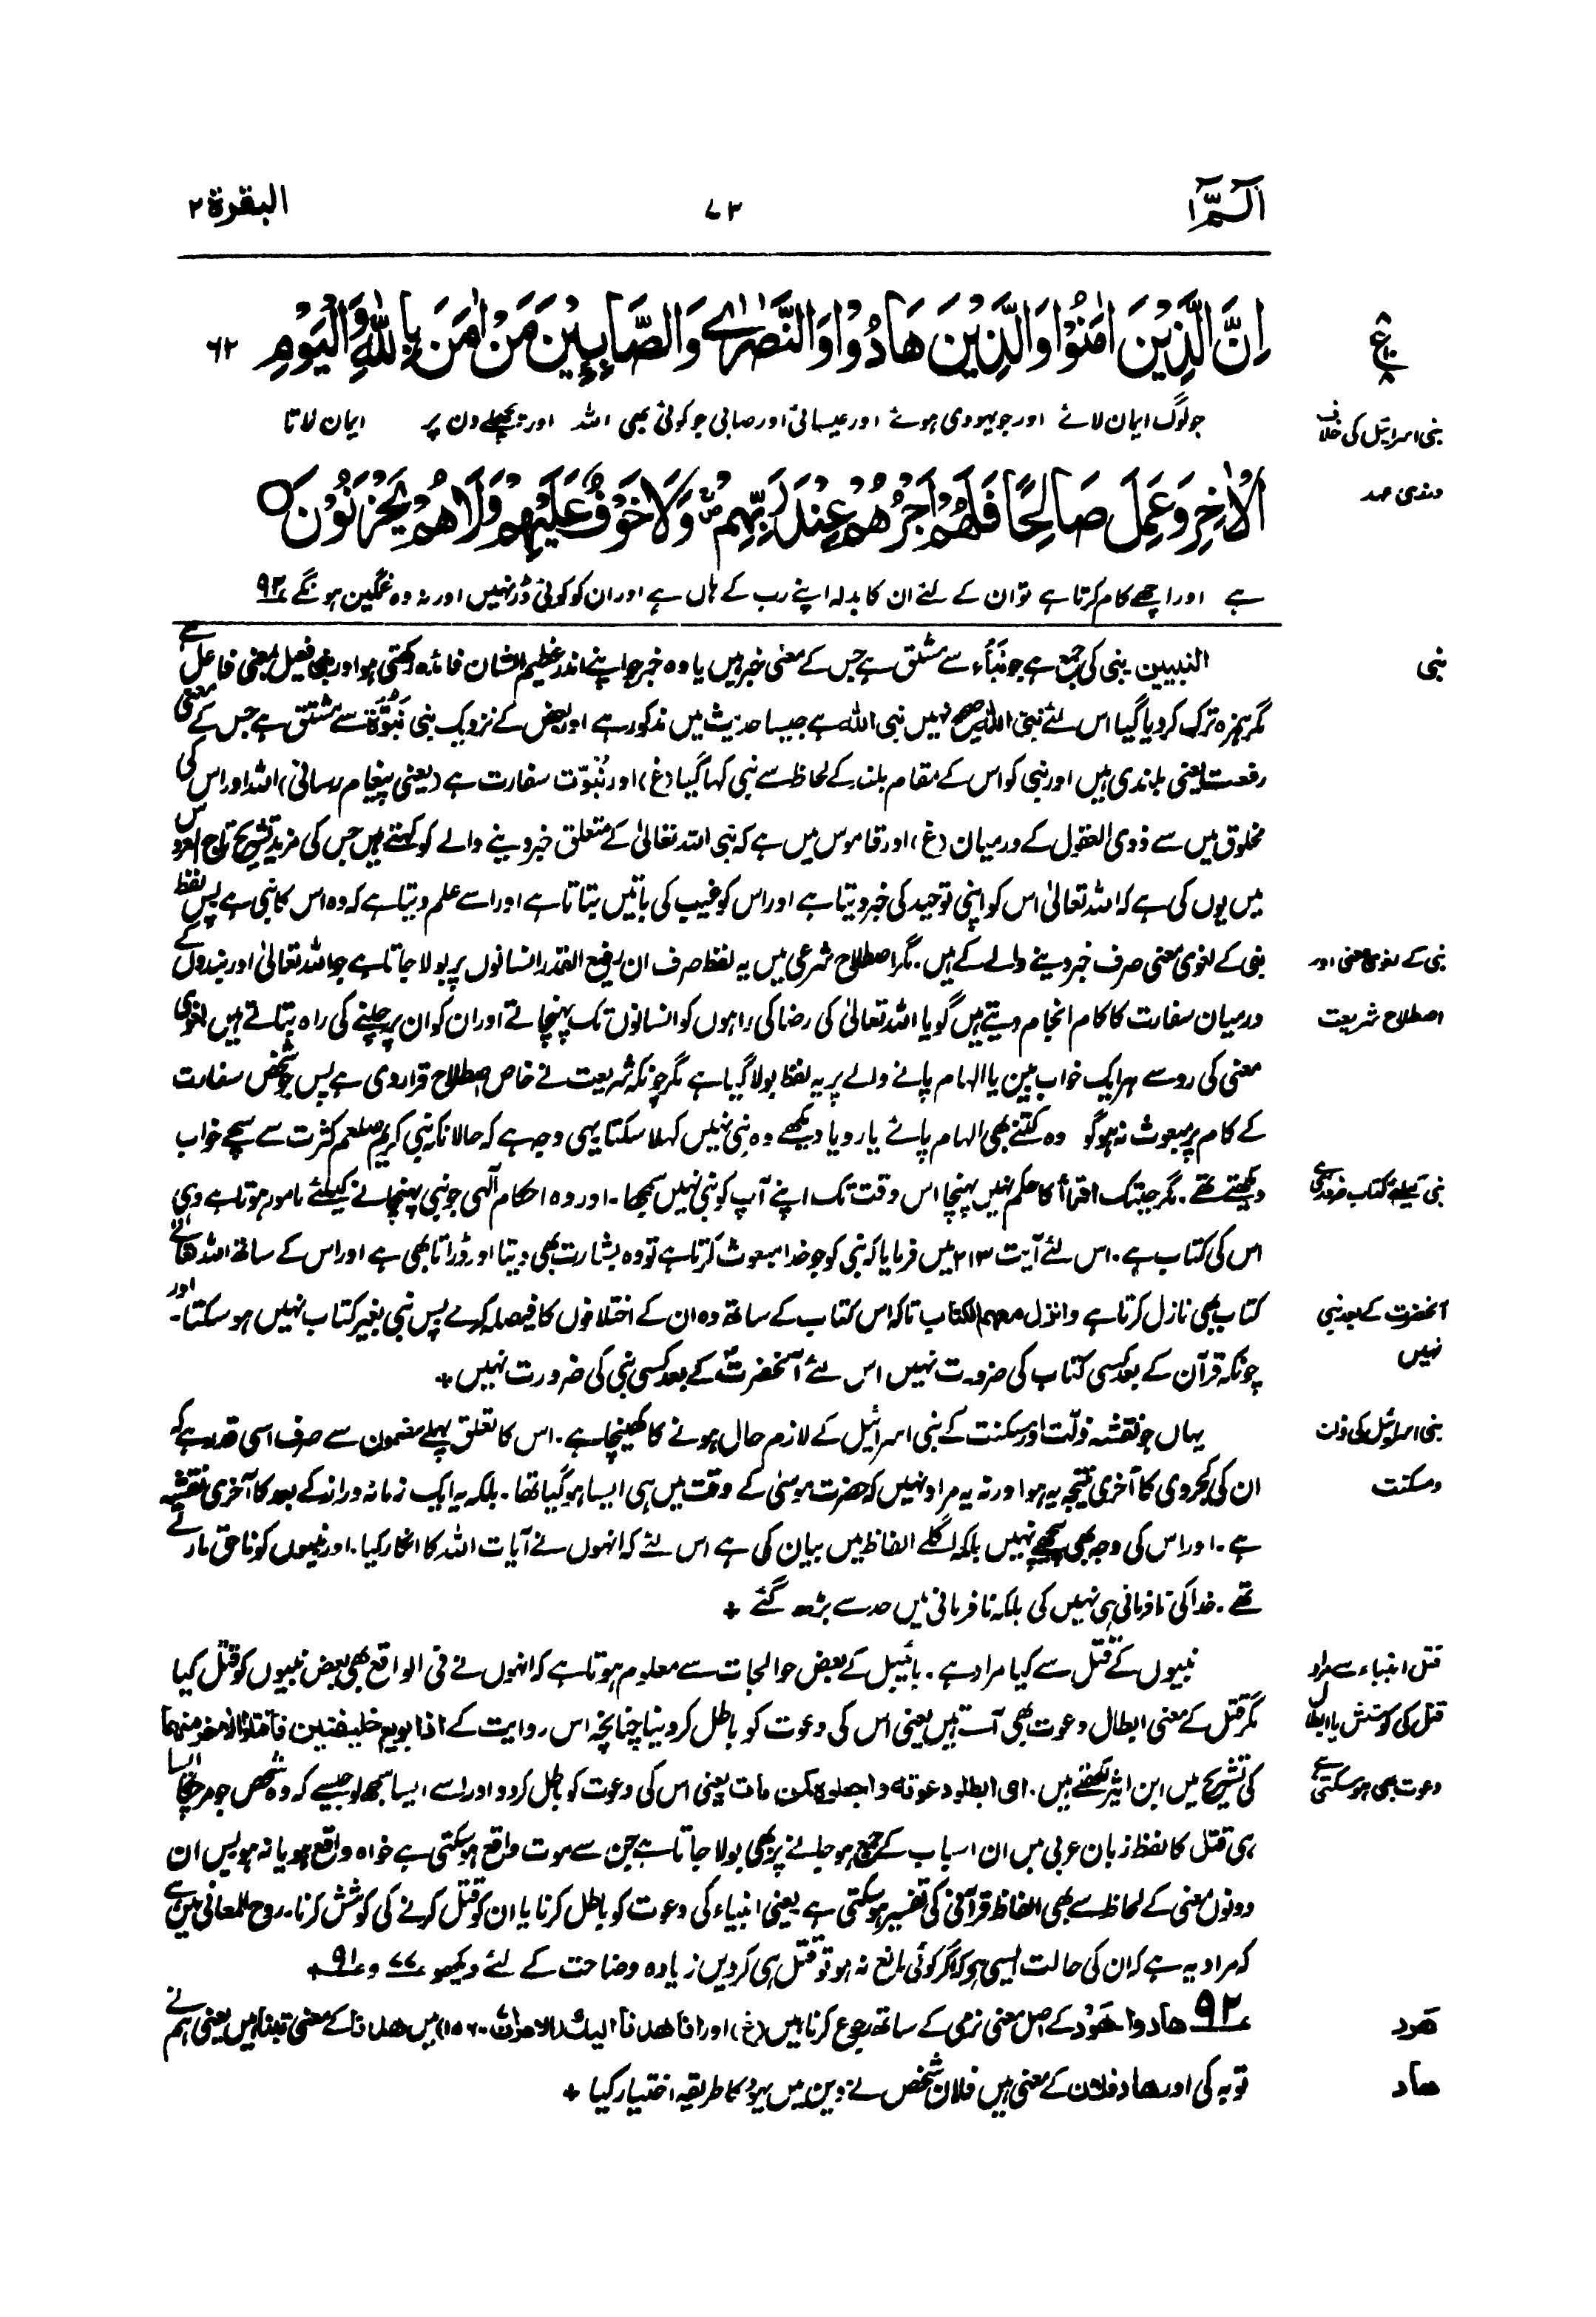 الٓمّٓ ۱
۷۳
البقرة ۲
اِنَّ الَّذِيْنَ اٰمَنُوْا وَالَّذِيْنَ هَادُوْا وَالنَّصٰرٰى وَالصَّابِـِٕيْنَ مَنْ اٰمَنَ بِاللّٰهِ وَالْيَوْمِ ۶۲
جو لوگ ایمان لائے اور جو یہودی ہوئے اور عیسائی اور صابی جو کوئی بھی اللہ اور پچھلے دن پر ایمان لاتا
الْاٰخِرِ وَعَمِلَ صَالِحًا فَلَهُمْ اَجْرُهُمْ عِنْدَ رَبِّهِمْ وَلَا خَوْفٌ عَلَيْهِمْ وَلَا هُمْ يَحْزَنُوْنَ
ہے اور اچھے کام کرتا ہے تو ان کے لئے ان کا بدلہ اپنے رب کے ہاں ہے اور ان کو کوئی ڈر نہیں اور نہ وہ غمگین ہونگے ۹۲
النبیین۔ نبی کی جمع ہے جو نَبَأٌ سے مشتق ہے جس کے معنی خبر ہیں یا وہ خبر جو اپنے اندر عظیم الشان فائدہ رکھتی ہو اور نبی فعیل بمعنی فاعل ہے
مگر ہمزہ ترک کردیا گیا اس لئے نبیء اللہ صحیح نہیں نبی اللہ ہے جیسا حدیث میں مذکور ہے اور بعض کے نزدیک نبی نَبْوَّة سے مشتق ہے جس کے معنی
رفعت یعنی بلندی ہیں اور نبی کو اس کے مقام بلند کے لحاظ سے نبی کہا گیا (غ) اور نُبُوّت سفارت ہے (یعنی پیغام رسانی) اللہ اور اس کی
مخلوق میں سے ذوی العقول کے درمیان (غ) اور قاموس میں ہے کہ نبی اللہ تعالیٰ کے متعلق خبر دینے والے کو کہتے ہیں جس کی مزید تشریح تاج العروس
میں یوں کی ہے کہ اللہ تعالیٰ اس کو اپنی توحید کی خبر دیتا ہے اور اس کو غیب کی باتیں بتاتا ہے اور اسے علم دیتا ہے کہ وہ اس کا نبی ہے پس لفظ
نبی کے لغوی معنی صرف خبر دینے والے کے ہیں۔ مگر اصطلاح شرعی میں یہ لفظ صرف ان رفیع القدر انسانوں پر بولا جاتا ہے جو اللہ تعالیٰ اور بندوں کے
درمیان سفارت کا کام انجام دیتے ہیں گویا اللہ تعالیٰ کی رضا کی راہوں کو انسانوں تک پہنچاتے اور ان کو ان پر چلنے کی راہ بتاتے ہیں لغوی
معنی کی رو سے ہر ایک خواب بین یا الہام پانے والے پر یہ لفظ بولا گیا ہے مگر چونکہ شریعت نے خاص اصطلاح قرار دی ہے پس جو شخص سفارت
کے کام پر مبعوث نہ ہو گو وہ کتنے بھی الہام پائے یا رویا دیکھے وہ نبی نہیں کہلا سکتا یہی وجہ ہے کہ حالانکہ نبی کریم صلعم کثرت سے سچے خواب
دیکھتے تھے۔ مگر جبتک اقرأ کا حکم نہیں پہنچا اس وقت تک اپنے آپ کو نبی نہیں سمجھا۔ اور وہ احکام الٰہی جو نبی پہنچانے کیلئے مامور ہوتا ہے وہی
اس کی کتاب ہے۔ اس لئے آیت ۲۱۳ میں فرمایا کہ نبی کو جو خدا مبعوث کرتا ہے تو وہ بشارت بھی دیتا اور ڈراتا بھی ہے اور اس کے ساتھ اللہ تعالیٰ
کتاب بھی نازل کرتا ہے وانزل معهم الکتاب تاکہ اس کتاب کے ساتھ وہ ان کے اختلافوں کا فیصلہ کرے پس نبی بغیر کتاب نہیں ہو سکتا۔ اور
چونکہ قرآن کے بعد کسی کتاب کی ضرورت نہیں اس لئے آنحضرتؐ کے بعد کسی نبی کی ضرورت نہیں +
یہاں جو نقشہ ذلّت اور مسکنت کے بنی اسرائیل کے لازم حال ہونے کا کھینچا ہے۔ اس کا تعلق پہلے مضمون سے صرف اسی قدر ہے کہ
ان کی کجروی کا آخری نتیجہ یہ ہوا ورنہ یہ مراد نہیں کہ حضرت موسیٰ کے وقت میں ہی ایسا ہو گیا تھا۔ بلکہ یہ ایک زمانہ دراز کے بعد کا آخری نقشہ
ہے۔ اور اس کی وجہ بھی پیچھے نہیں بلکہ اگلے الفاظ میں بیان کی ہے اس لئے کہ انہوں نے آیات اللہ کا انکار کیا۔ اور نبیوں کو ناحق مارتے
تھے۔ خدا کی نافرمانی ہی نہیں کی بلکہ نافرمانی میں حد سے بڑھ گئے +
نبیوں کے قتل سے کیا مراد ہے۔ بائیبل کے بعض حوالجات سے معلوم ہوتا ہے کہ انہوں نے فی الواقع بھی بعض نبیوں کو قتل کیا
مگر قتل کے معنی ابطال دعوت بھی آتے ہیں یعنی اس کی دعوت کو باطل کر دینا چنانچہ اس روایت کے اذا بویع خلیفتین فاقتلوا الاٰخر منهما
کی تشریح میں ابن اثیر لکھتے ہیں۔ ای ابطلوا دعوته واجعلوہ کمن مات یعنی اس کی دعوت کو باطل کردو اور اسے ایسا سمجھ لو جیسے کہ وہ شخص جو مر چکا ایسا
ہی قتل کا لفظ زبان عربی میں ان اسباب کے جمع ہو جانے پر بھی بولا جاتا ہے جن سے موت واقع ہوسکتی ہے خواہ واقع ہو یا نہ ہو پس ان
دونوں معنی کے لحاظ سے بھی الفاظ قرآنی کی تفسیر ہوسکتی ہے یعنی انبیاء کی دعوت کو باطل کرنا یا ان کو قتل کرنے کی کوشش کرنا۔ روح المعانی میں ہے
کہ مراد یہ ہے کہ ان کی حالت ایسی ہو کہ اگر کوئی مانع نہ ہو تو قتل ہی کردیں زیادہ وضاحت کے لئے دیکھو ۷۷ و ۹۱ +
۹۲ هادوا هَوْد کے اصل معنی نرمی کے ساتھ رجوع کرنا ہیں (غ) اور انا هدنا الیك (الاعراف ۱۵۶) میں هدنا کے معنی تبنا ہیں یعنی ہم نے
توبہ کی اور هاد فلان کے معنی ہیں فلاں شخص نے دین میں یہود کا طریقہ اختیار کیا +
ع
بنی اسرائیل کی خلاف
ورزی عہد
نبی
نبی کے لغوی معنی اور
اصطلاح شریعت
نبی کیلئے کتاب ضروری ہے
آنحضرت کے بعد نبی
نہیں
بنی اسرائیل کی ذلت
و مسکنت
قتل انبیاء سے مراد
قتل کی کوشش یا ابطال
دعوت بھی ہوسکتی ہے
هَود
هاد